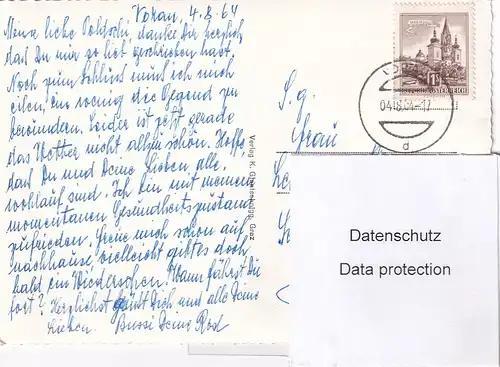 Vorau, 4.8.64
Meine liebe Poldschi, danke Dir herzlich
daß Du mir so lieb geschrieben hast.
Noch zum Schluss muß ich mich
eilen, um wenig die Gegend zu
bewundern. Leider ist jetzt gerade
das Wetter nicht allzu schön. Hoffe
daß Du und Deine Lieben alle
wohlauf sind. Ich bin mit meinem
momentanen Gesundheitszustand
zufrieden. Freue mich schon auf
nachhause, vielleicht gibt es doch
bald ein Wiedersehen. Wann fährst Du
fort? Herzlichst grüßt Dich und alle Deine
Lieben. Bussi Deine
Verlag K. Graz
REPUBLIK ÖSTERREICH
04.8.64-17
d
S. g.
Frau
Datenschutz
Data protection